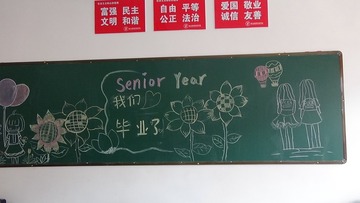 富强 民主
文明 和谐
自由 平等
公正 法治
爱国 敬业
诚信 友善
Senior Year
我们
毕业了